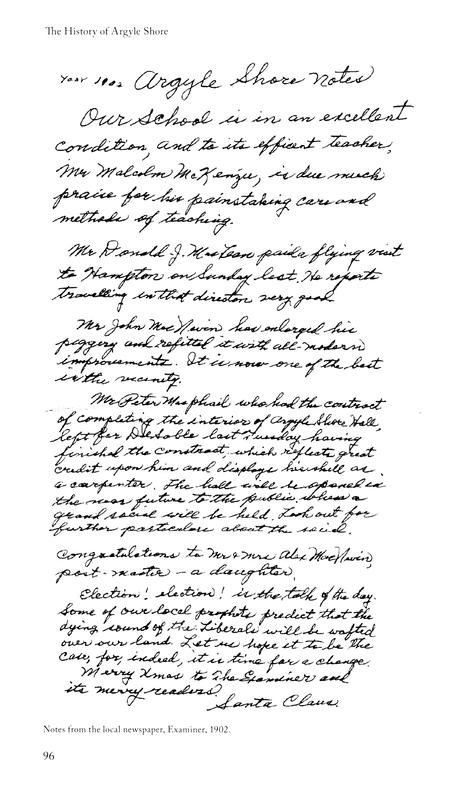 The History of Argyle Shore
Year 1902 Argyle Shore Notes
Our School is in an excellent
condition, and to its efficent teacher,
Mr Malcolm McKenzie, is due much
praise for his painstaking care and
methods of teaching.
Mr Donald J. MacLean paid a flying visit
to Hampton on Sunday last. He reports
travelling in that direction very good
Mr John MacNiven has enlarged his
piggery and refitted it with all-modern
improvements. It is now one of the best
in the vicinity.
Mr Peter Macphail who had the contract
of completing the interior of Argyle Shore Hall,
left for DeSable last Tuesday having
finished the contract, which reflects great
credit upon him and displays his skill as
a carpenter. The hall will be opened in
the near future to the public when a
grand social will be held. Look out for
further particulars about the
Congratulations to Mr & Mrs Alex MacNiven,
post-master - a daughter.
Election! election! is the talk of the day.
Some of our local prophets predict that the
dying sound of the Liberals will be wafted
over our land. Let us hope it to be the
case, for, indeed, it is time for a change.
Merry Xmas to The Examiner and
its merry readers.
Santa Claus.
Notes from the local newspaper, Examiner, 1902.
96